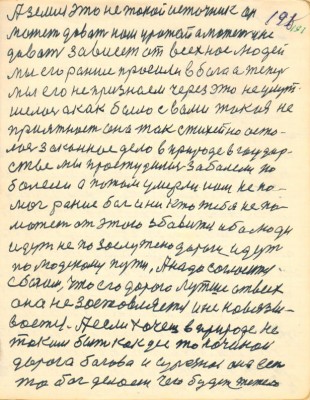 193
А земля это не такой источник он
может давать нам урожай а может и не
давать зависет от всех нас людей
мы его ранше просили в бога а тепер
мы его не признаем через это не
шелся а как было с вами такая не
приятност она так стихейно
лоя законное дело в природе в государ-
стве мы простудилис заболели по
болели а потом умерли нам не по-
мог ранше бог и ни кто тебя не по-
может от этого збавити иба люди
идут не по заслуженой дороги идут
по людскому пути, А надо
что его дорого лутше от всех
она не заставляет и не навязы-
вает. А если хочеш в природе не
таким быт как все то
дорога багова и она ест
то бог делает чего будет